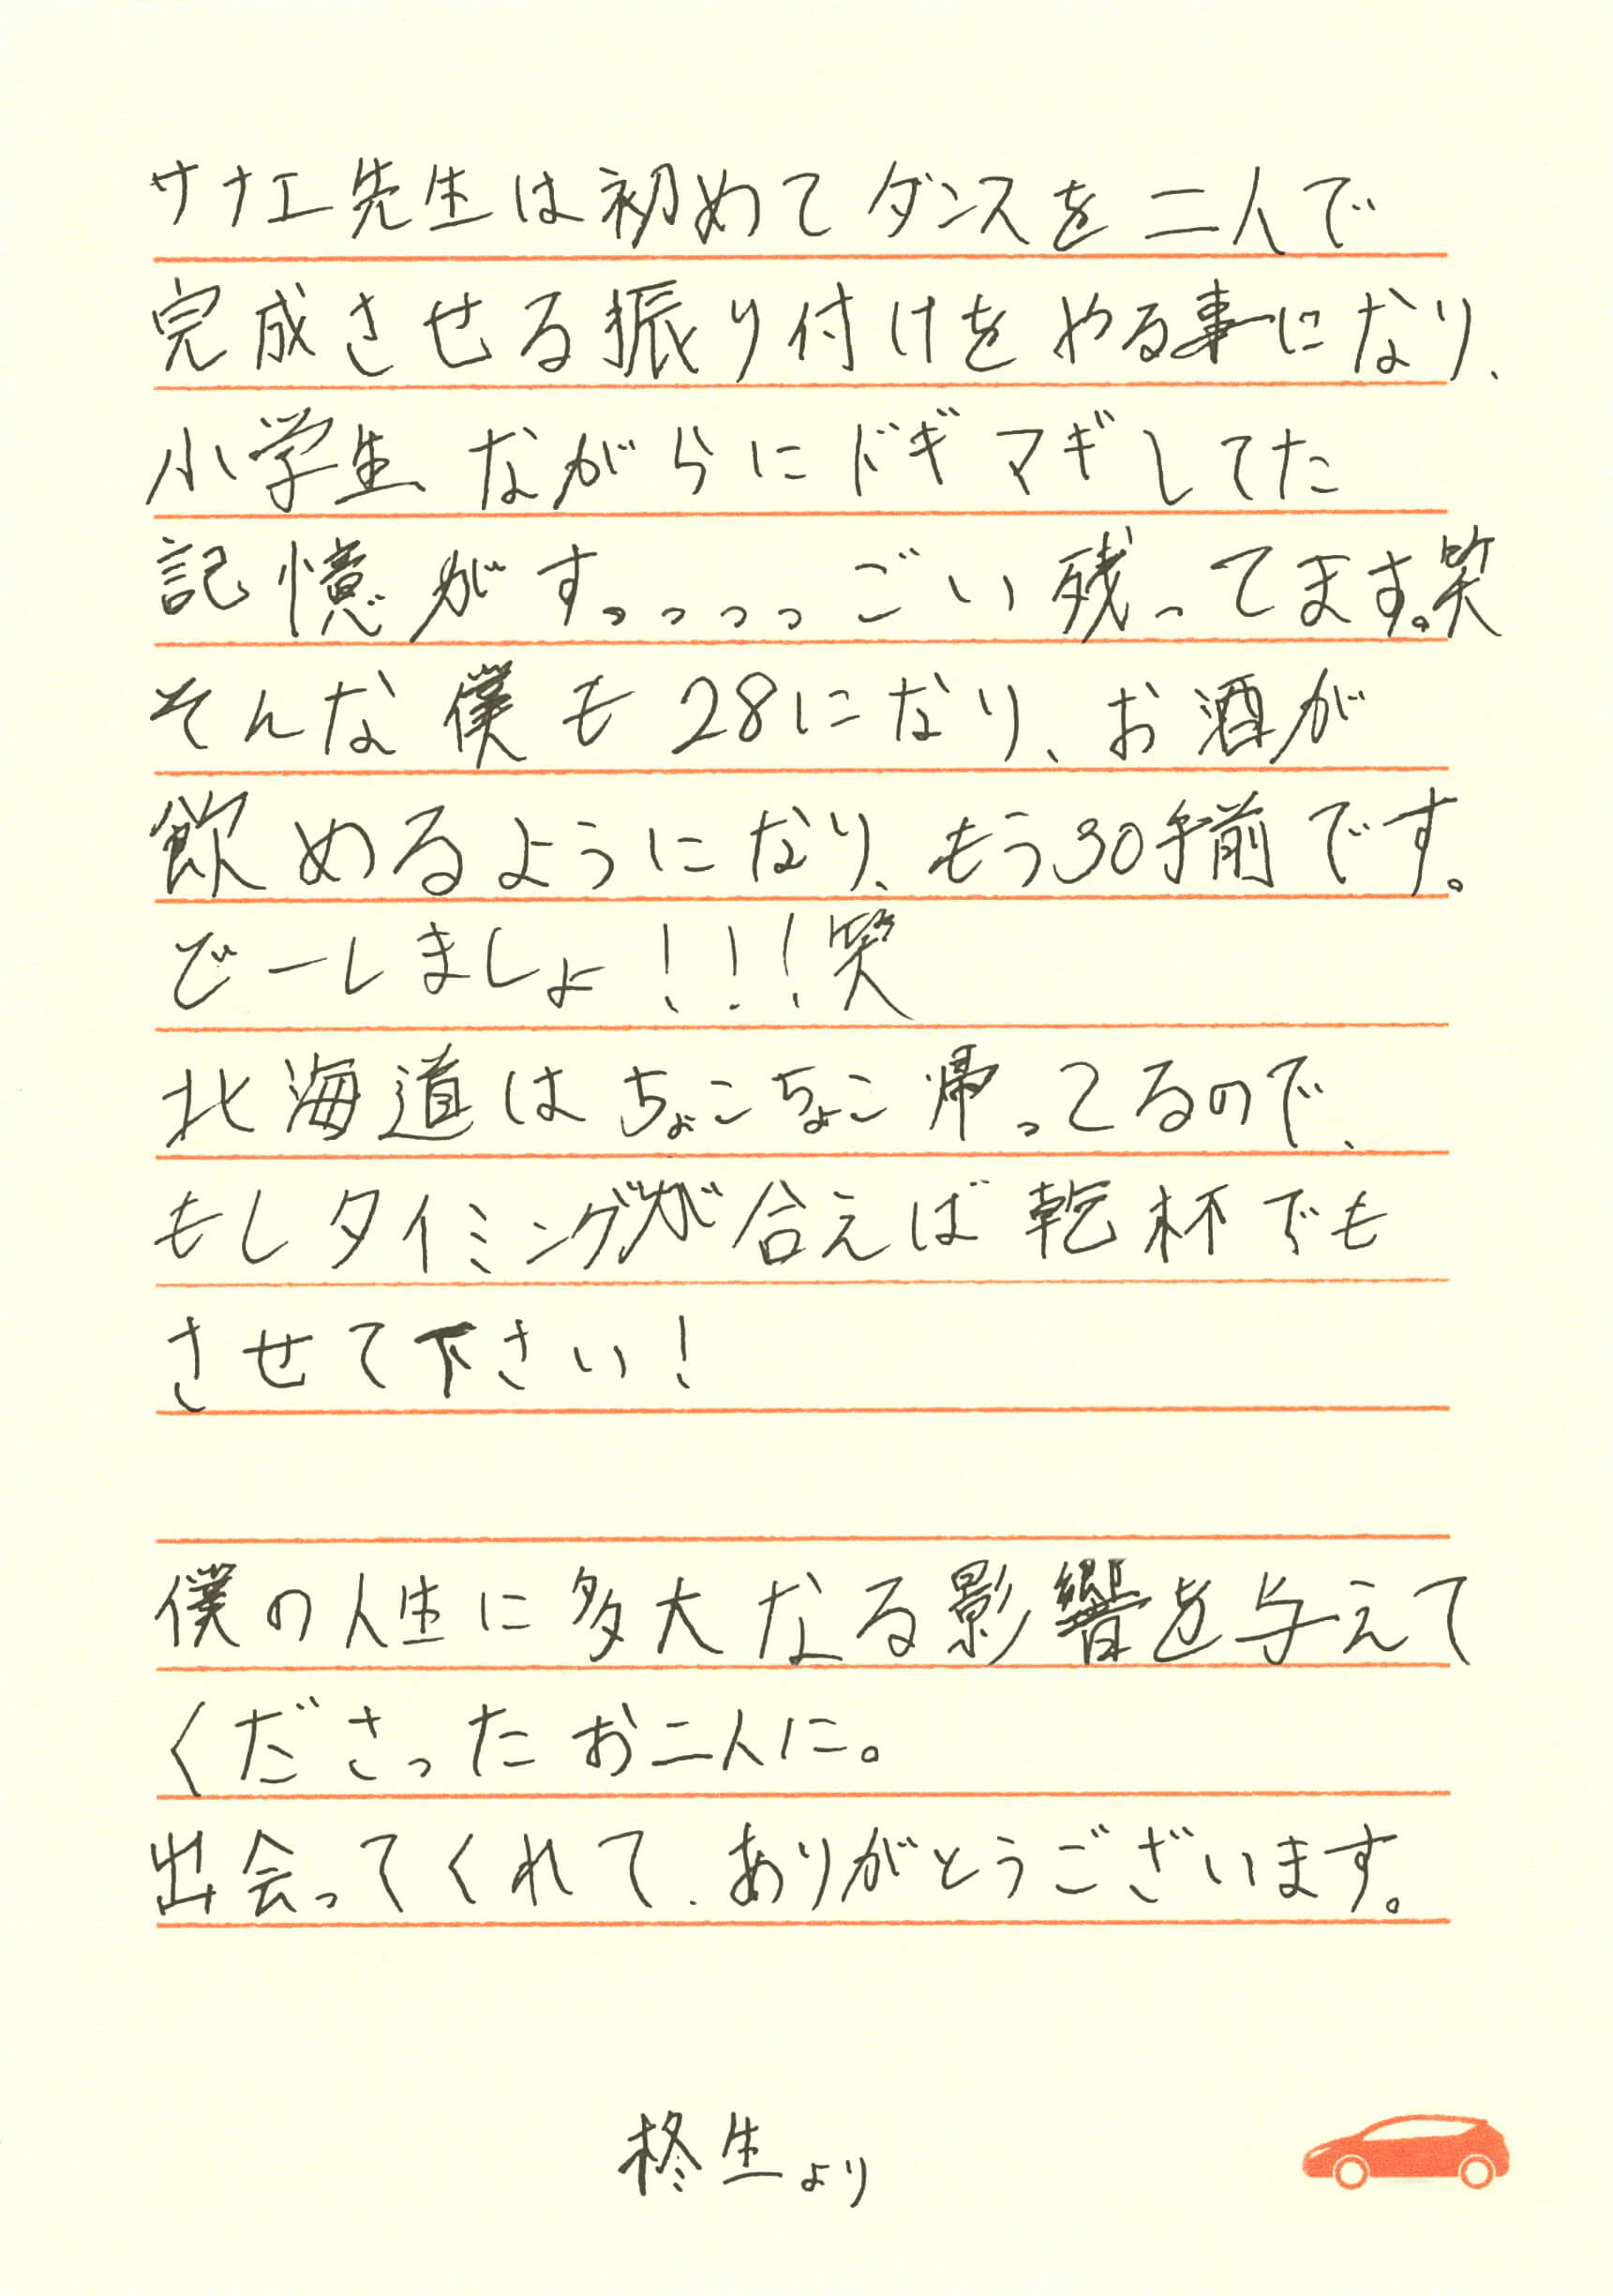 サナエ先生は初めてダンスを二人で
完成させる振り付けをやる事になり、
小学生ながらにドギマギしてた
記憶がすっっっっごい残ってます。笑
そんな僕も28になり、お酒が
飲めるようになり、もう30手前です。
どーしましょ!!!笑
北海道はちょこちょこ帰ってるので、
もしタイミングが合えば乾杯でも
させて下さい!
僕の人生に多大なる影響を与えて
くださったお二人に。
出会ってくれて、ありがとうございます。
柊生より